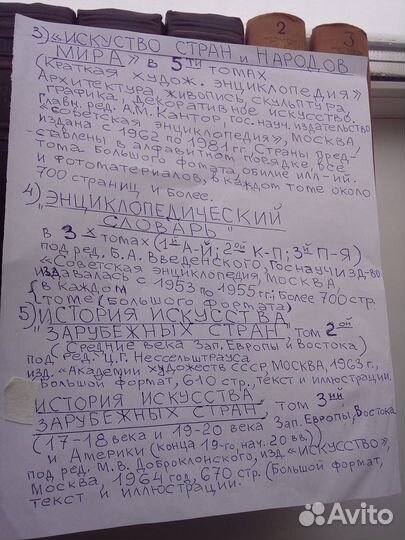 2
3
3) «ИСКУСТВО СТРАН и НАРОДОВ
МИРА» в 5ти томах
(Краткая худож. энциклопедия»
Архитектура, живопись, скульптура,
графика, декоративное искусство.
Главн. ред. А.М. Кантор, гос. науч. издательство
«Советская энциклопедия», Москва
издана с 1962 по 1981 г., Страны пред-
-ставлены в алфавитном порядке, все
тома большого фомата, обилие илл-ий.
и фотоматериалов, в каждом томе около
700 страниц и более.
4) "ЭНЦИКЛОПЕДИЧЕСКИЙ
СЛОВАРЬ"
в 3х томах (1й А-Й; 2ой К-П; 3й П-Я)
под ред. Б.А. Введенского, Госнаучизд-во
«Советская энциклопедия, Москва,
издавалась с 1953 по 1955 гг; Более 700 стр.
в каждом
томе (Большого формата)
5) ИСТОРИЯ ИСКУССТВА
"ЗАРУБЕЖНЫХ СТРАН" том 2ой
(Средние века Зап. Европы и Востока)
под ред. Ц.Г. Нессельштрауса
изд. «Академии художеств СССР, Москва, 1963 г.,
Большой формат, 610 стр., текст и иллюстрации.
ИСТОРИЯ ИСКУССТВА
ЗАРУБЕЖНЫХ СТРАН том 3ий
(17-18 века и 19-20 века Зап. Европы, Востока
и Америки (конца 19-го, нач. 20 вв.))
под ред. М.В. Доброклонского, изд. «ИСКУССТВО»,
Москва, 1964 год, 670 стр. (Большой формат,
текст и иллюстрации.
Avito